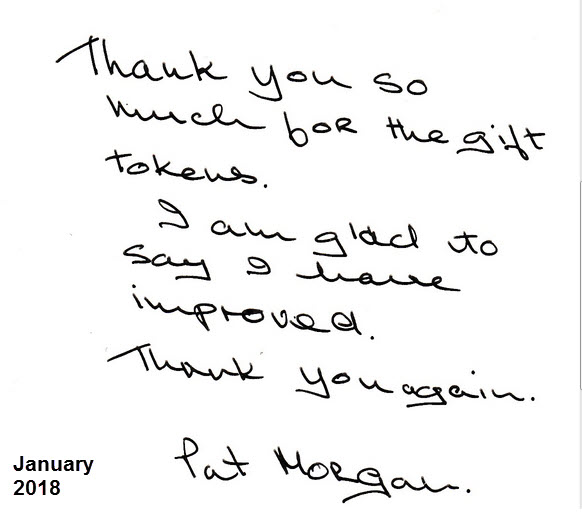 Thank you so
much for the gift
tokens.
I am glad to
say I have
improved.
Thank you again.
Pat Morgan.
January
2018